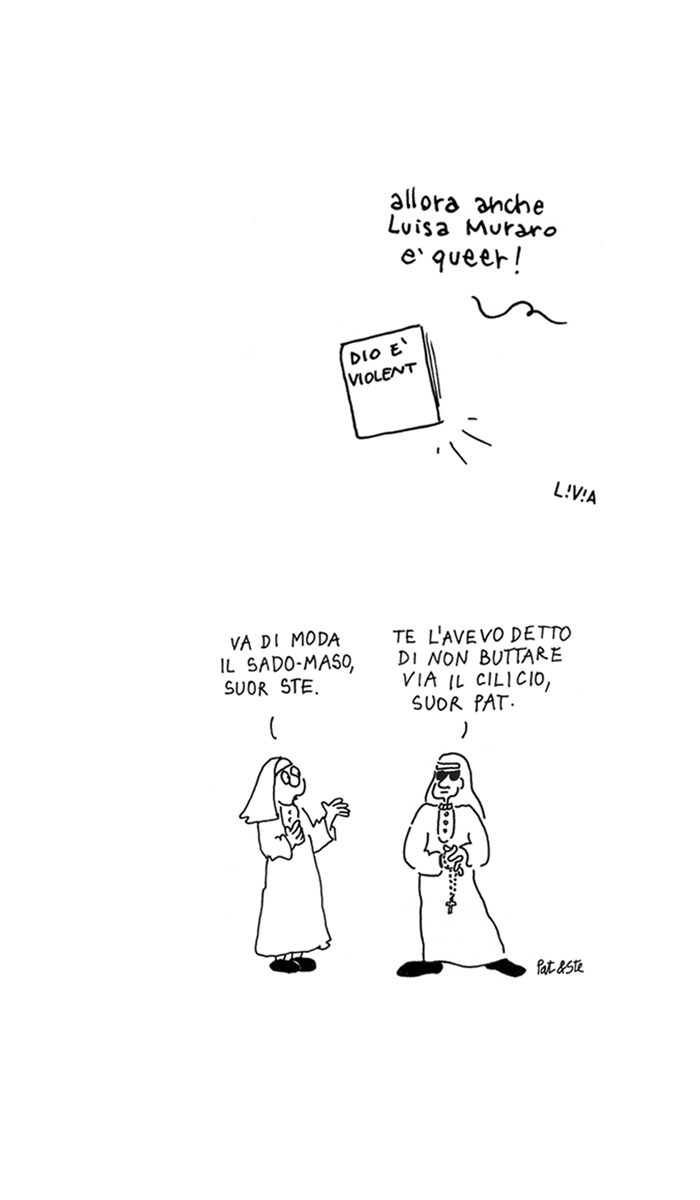 allora anche
Luisa Muraro
e' queer!
DIO E'
VIOLENT
L!V!A
VA DI MODA
IL SADO-MASO,
SUOR STE.
TE L'AVEVO DETTO
DI NON BUTTARE
VIA IL CILICIO,
SUOR PAT.
Pat & Ste